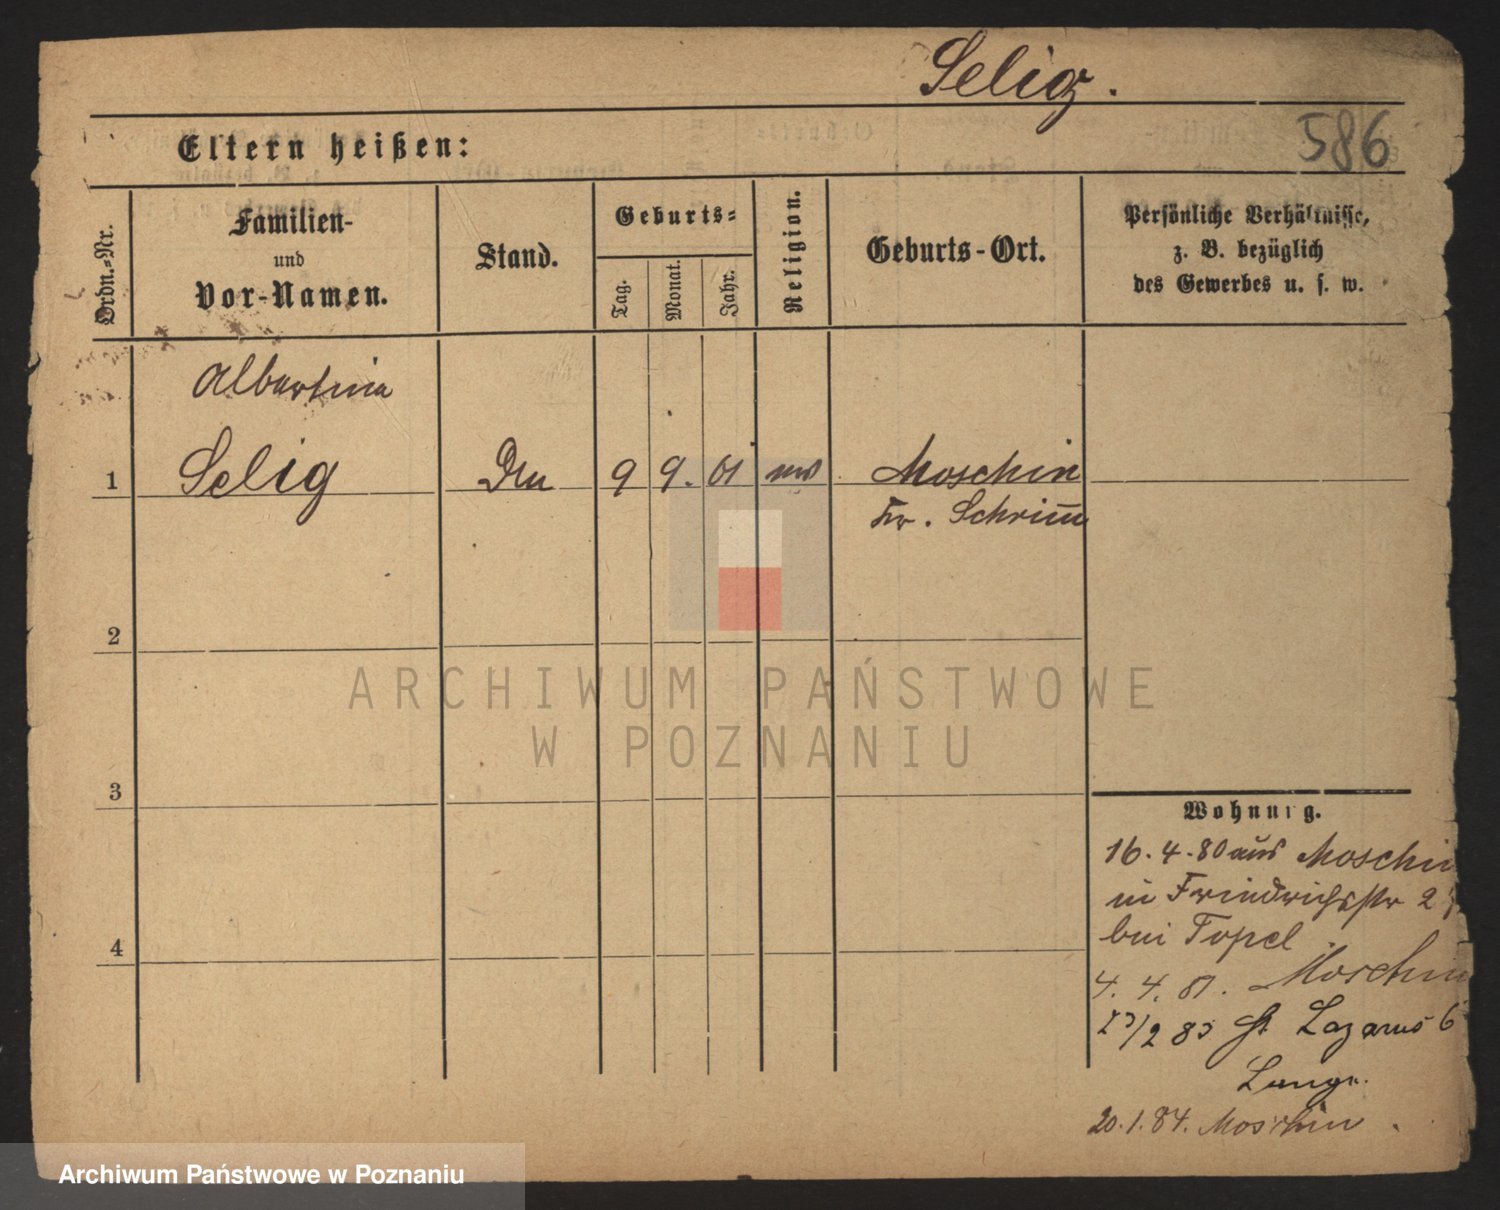 Selig.
586
Eltern heißen:
Ordn.-Nr.
Familien-
und
Vor-Namen.
Stand.
Geburts-
Tag.
Monat.
Jahr.
Religion.
Geburts-Ort.
Persönliche Verhältnisse,
z. B. bezüglich
des Gewerbes u. s. w.
Albertine
1 Selig 9 9. 61 Moschin
Kr. Schrimm
2
3
4
Wohnung.
16.4.80 aus Moschin
in Friedrichsstr 2
bei Topel
4. 4. 81. Moschin
/2 83 St Lazarus 6
Lange.
20.1.84. Moschin.
ARCHIWUM PAŃSTWOWE
W POZNANIU
Archiwum Państwowe w Poznaniu